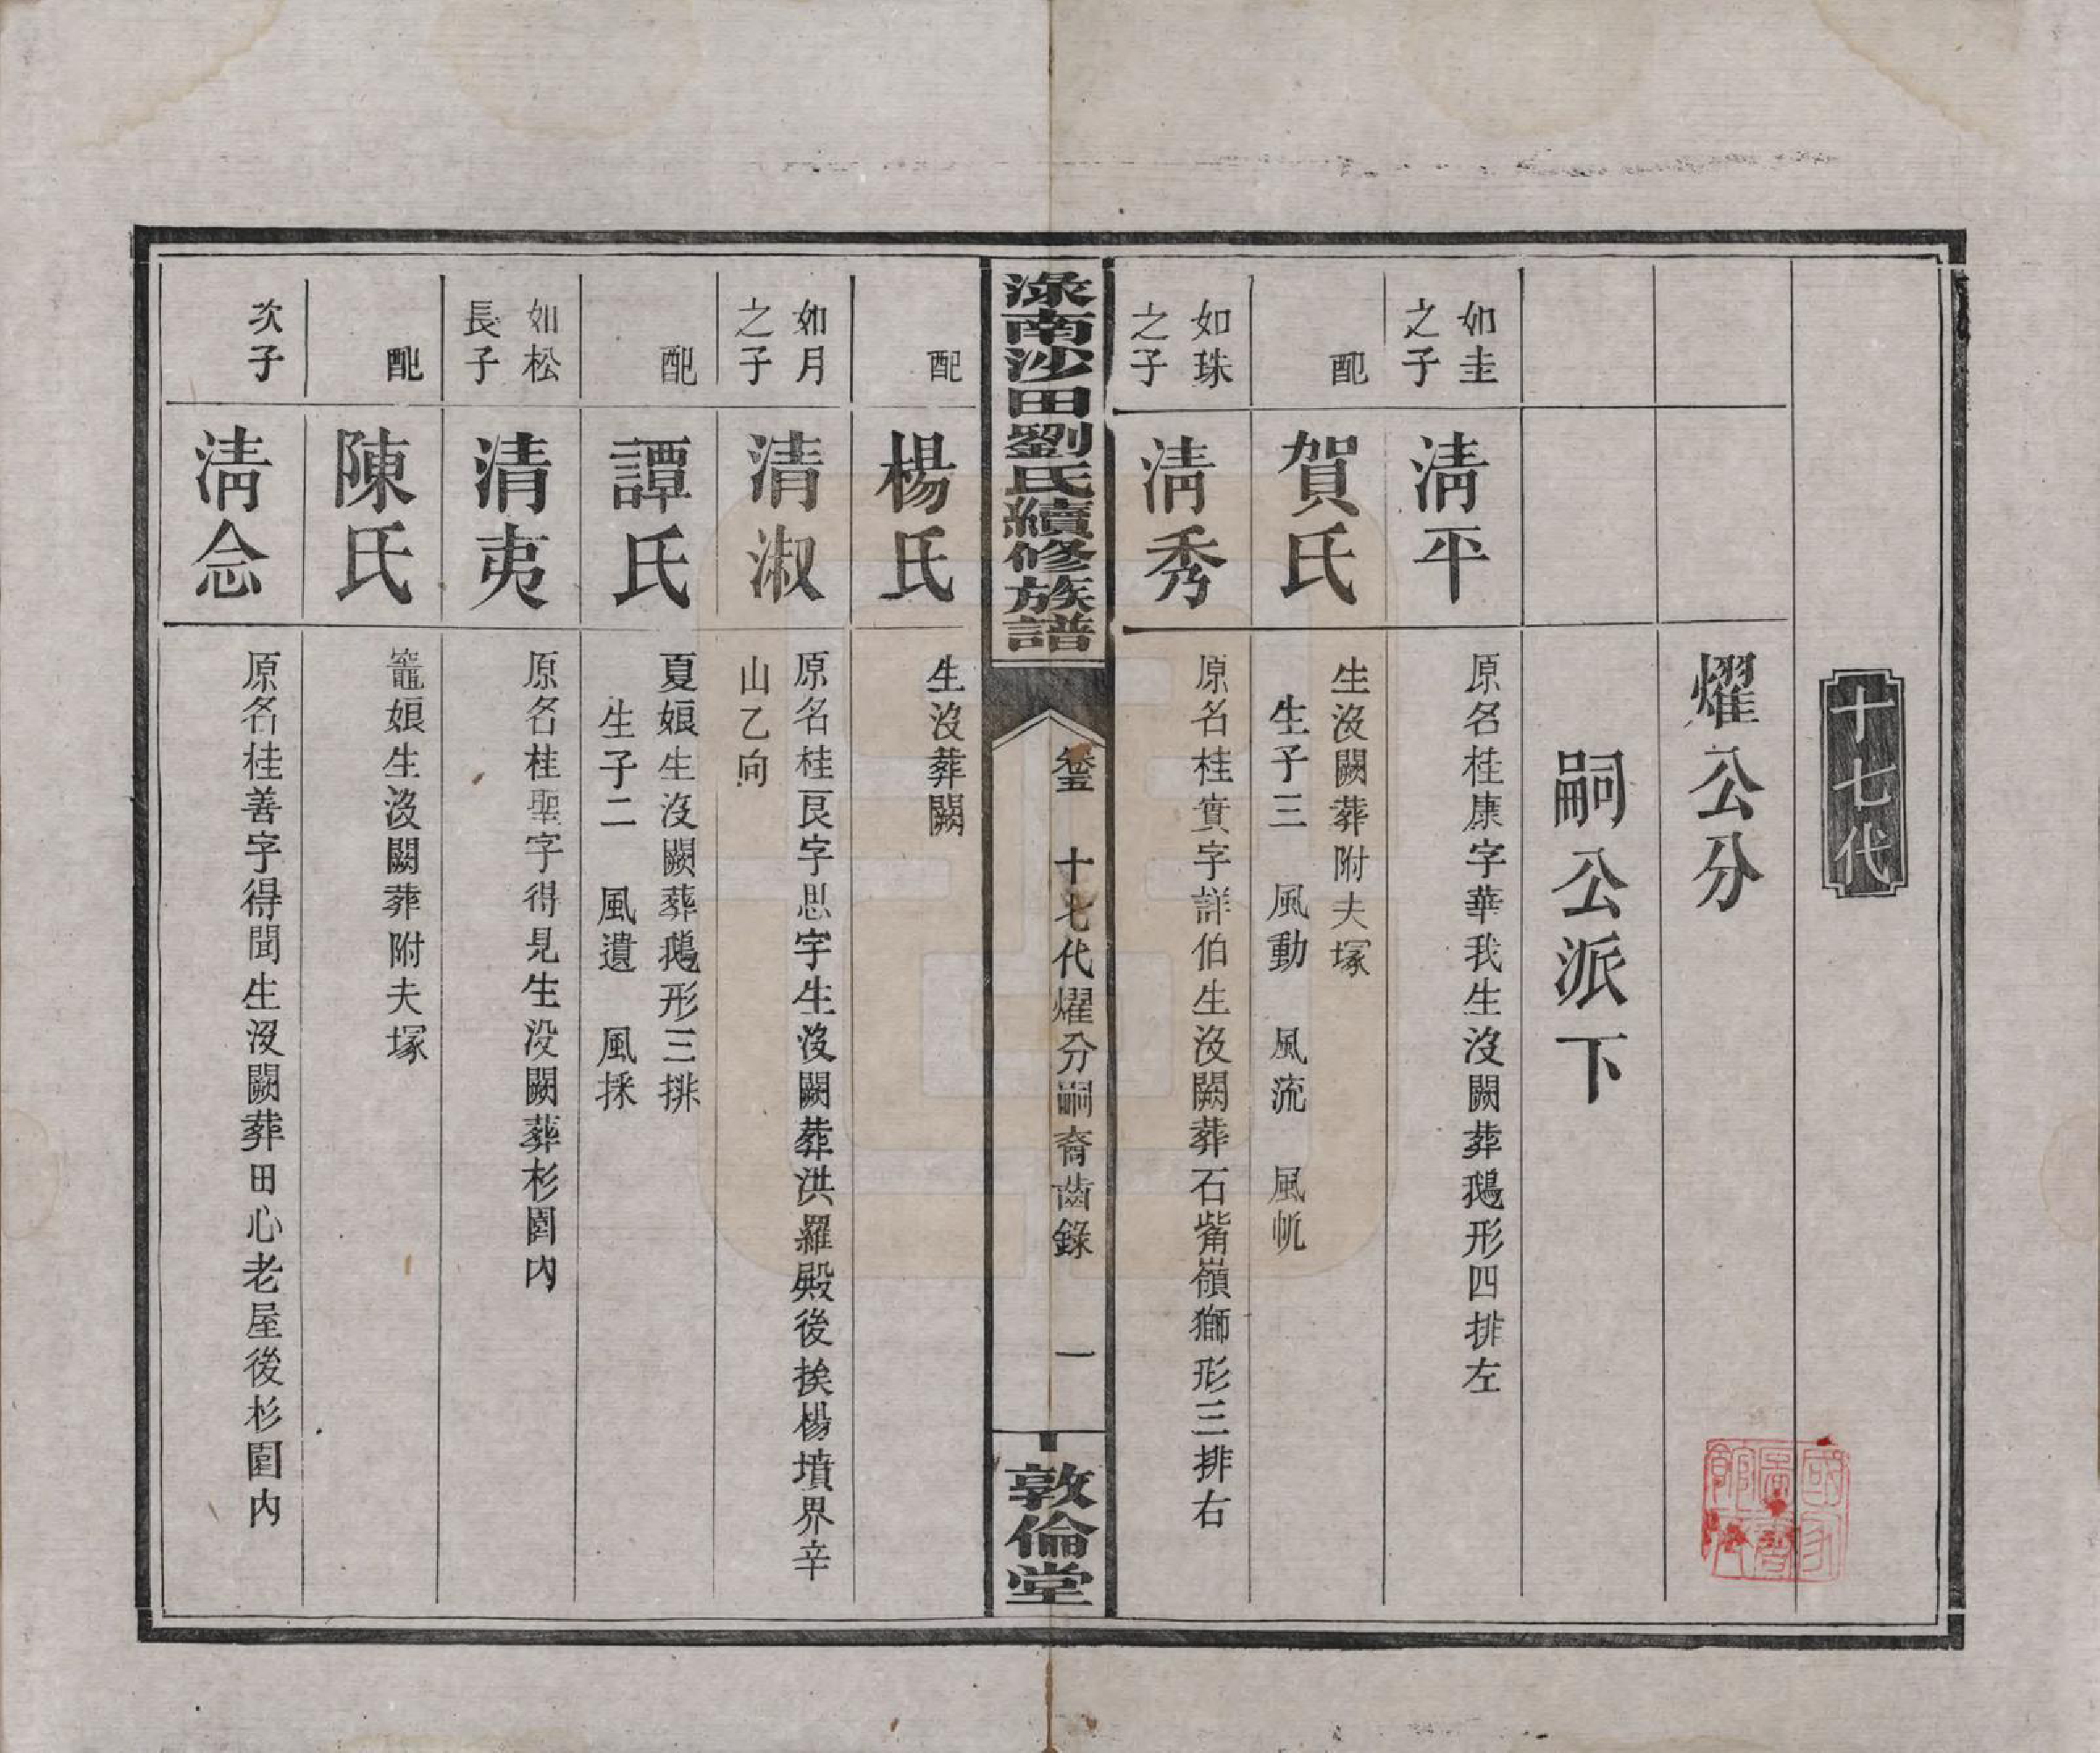 十七代
燿公分
嗣公派下
如圭
之子
清平
原名桂康字華我生沒闕葬鵝形四排左
配
賀氏
生沒闕葬附夫塚
生子三 風動 風流 風帆
如珠
之子
清秀
原名桂實字詳伯生沒闕葬石觜嶺獅形三排右
淥南沙田劉氏續修族譜
卷五
十七代燿分嗣裔齒錄
一
敦倫堂
配
楊氏
生沒葬闕
如月
之子
清淑
原名桂艮字思字生沒闕葬洪羅殿後挨楊墳界辛
山乙向
配
譚氏
夏娘生沒闕葬鵝形三排
生子二 風遺 風採
如松
長子
清夷
原名桂聖字得見生沒闕葬杉園內
配
陳氏
竈娘生沒闕葬附夫塚
次子
清念
原名桂善字得聞生沒闕葬田心老屋後杉園內